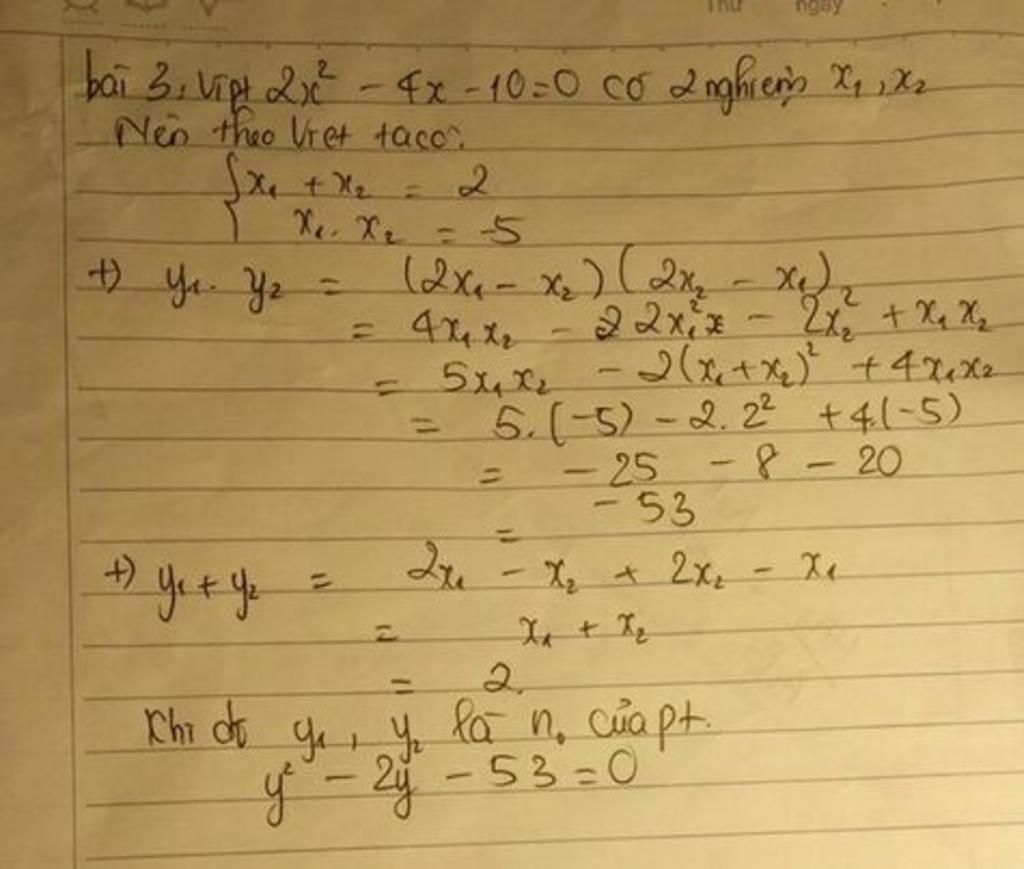 Thứ ngày
bài 3, Vì pt 2x² - 4x - 10 = 0 có 2 nghiệm x₁, x₂
Nên theo Viet ta có:
{ x₁ + x₂ = 2
x₁. x₂ = -5
+) y₁. y₂ = (2x₁ - x₂)(2x₂ - x₁)
= 4x₁x₂ - 2x₁² - 2x₂² + x₁x₂
= 5x₁x₂ - 2(x₁+x₂)² + 4x₁x₂
= 5.(-5) - 2. 2² + 4.(-5)
= - 25 - 8 - 20
= - 53
+) y₁ + y₂ = 2x₁ - x₂ + 2x₂ - x₁
= x₁ + x₂
= 2.
Khi đó y₁, y₂ là n₀ của pt.
y² - 2y - 53 = 0